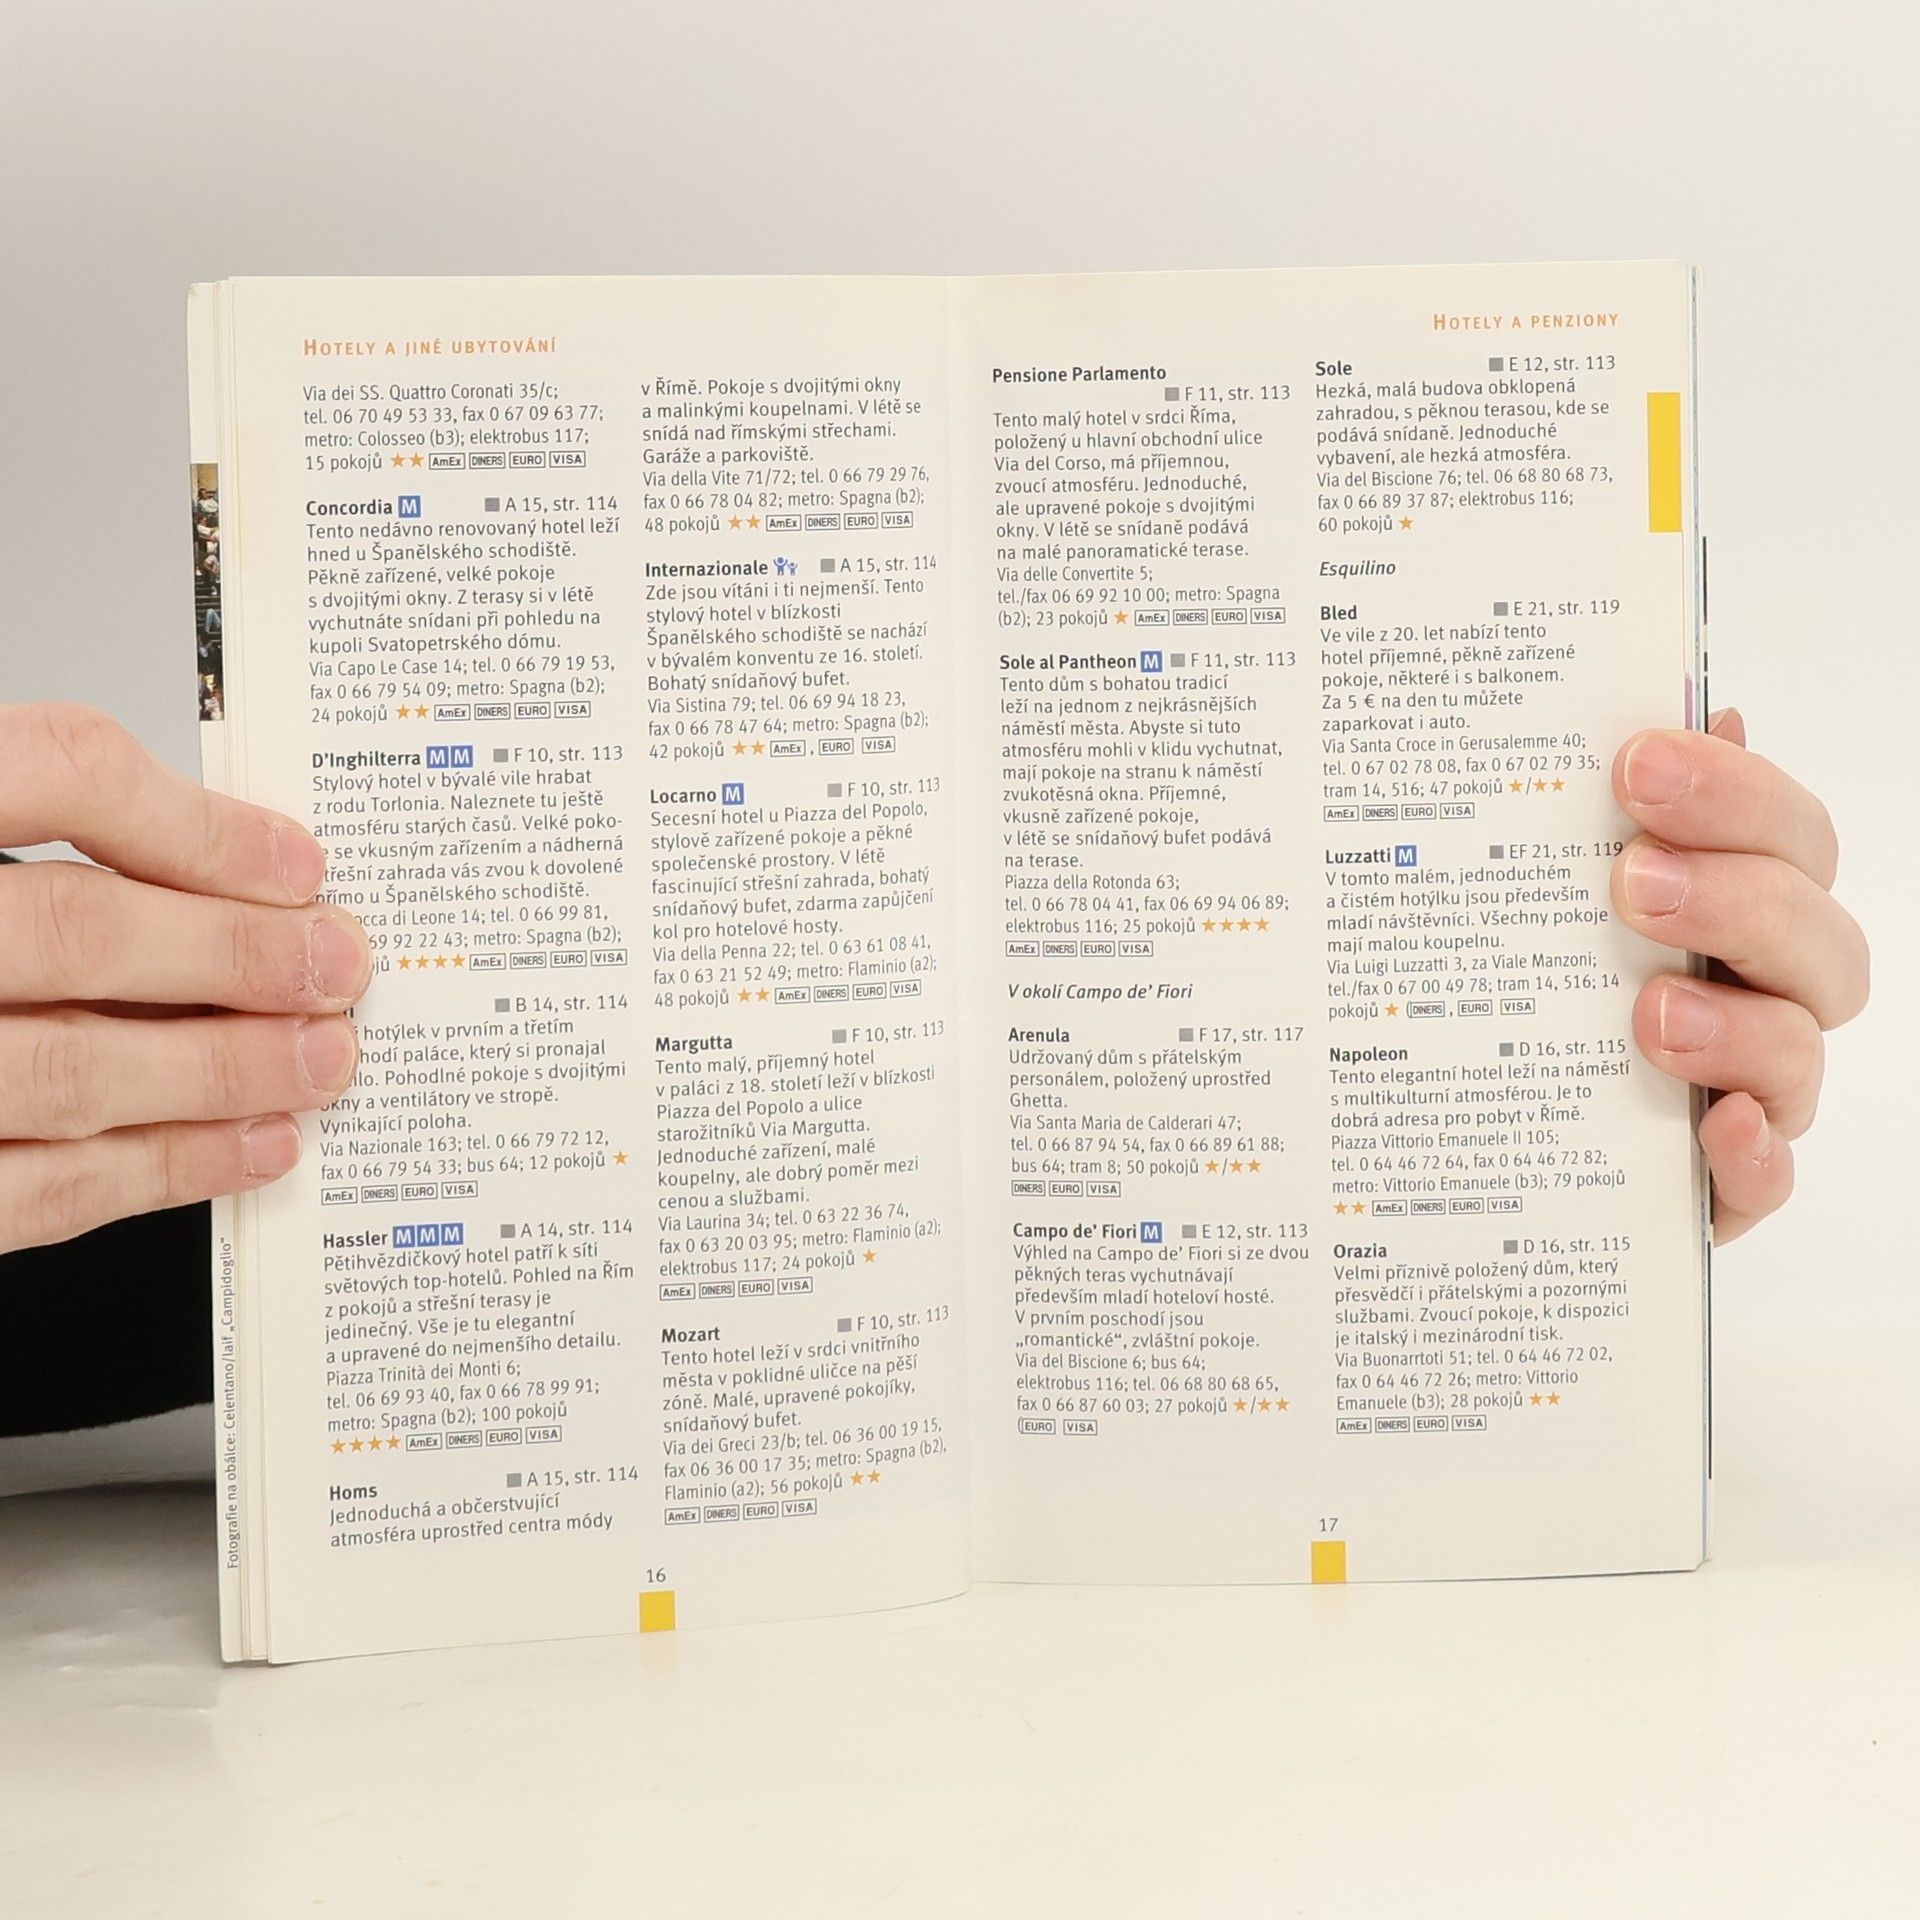 HOTELY A JINÉ UBYTOVÁNÍ
Via dei SS. Quattro Coronati 35/c;
tel. 06 70 49 53 33, fax 0 67 09 63 77;
metro: Colosseo (b3); elektrobus 117;
15 pokojů ★★ AmEx DINERS EURO VISA
Concordia M A 15, str. 114
Tento nedávno renovovaný hotel leží
hned u Španělského schodiště.
Pěkně zařízené, velké pokoje
s dvojitými okny. Z terasy si v létě
vychutnáte snídani při pohledu na
kupoli Svatopetrského dómu.
Via Capo Le Case 14; tel. 0 66 79 19 53,
fax 0 66 79 54 09; metro: Spagna (b2);
24 pokojů ★★ AmEx DINERS EURO VISA
D'Inghilterra M M F 10, str. 113
Stylový hotel v bývalé vile hrabat
z rodu Torlonia. Naleznete tu ještě
atmosféru starých časů. Velké poko-
se vkusným zařízením a nádherná
třešní zahrada vás zvou k dovolené
přímo u Španělského schodiště.
occa di Leone 14; tel. 0 66 99 81,
69 92 22 43; metro: Spagna (b2);
ojů ★★★★ AmEx DINERS EURO VISA
B 14, str. 114
hotýlek v prvním a třetím
hodí paláce, který si pronajal
lo. Pohodlné pokoje s dvojitými
okny a ventilátory ve stropě.
Vynikající poloha.
Via Nazionale 163; tel. 0 66 79 72 12,
fax 0 66 79 54 33; bus 64; 12 pokojů ★
AmEx DINERS EURO VISA
Hassler M M M A 14, str. 114
Pětihvězdičkový hotel patří k síti
světových top-hotelů. Pohled na Řím
z pokojů a střešní terasy je
jedinečný. Vše je tu elegantní
a upravené do nejmenšího detailu.
Piazza Trinità dei Monti 6;
tel. 06 69 93 40, fax 0 66 78 99 91;
metro: Spagna (b2); 100 pokojů
★★★★ AmEx DINERS EURO VISA
Homs A 15, str. 114
Jednoduchá a občerstvující
atmosféra uprostřed centra módy
v Římě. Pokoje s dvojitými okny
a malinkými koupelnami. V létě se
snídá nad římskými střechami.
Garáže a parkoviště.
Via della Vite 71/72; tel. 0 66 79 29 76,
fax 0 66 78 04 82; metro: Spagna (b2);
48 pokojů ★★ AmEx DINERS EURO VISA
Internazionale A 15, str. 114
Zde jsou vítáni i ti nejmenší. Tento
stylový hotel v blízkosti
Španělského schodiště se nachází
v bývalém konventu ze 16. století.
Bohatý snídaňový bufet.
Via Sistina 79; tel. 06 69 94 18 23,
fax 0 66 78 47 64; metro: Spagna (b2);
42 pokojů ★★ AmEx, EURO VISA
Locarno M F 10, str. 113
Secesní hotel u Piazza del Popolo,
stylově zařízené pokoje a pěkné
společenské prostory. V létě
fascinující střešní zahrada, bohatý
snídaňový bufet, zdarma zapůjčení
kol pro hotelové hosty.
Via della Penna 22; tel. 0 63 61 08 41,
fax 0 63 21 52 49; metro: Flaminio (a2);
48 pokojů ★★ AmEx DINERS EURO VISA
Margutta F 10, str. 113
Tento malý, příjemný hotel
v paláci z 18. století leží v blízkosti
Piazza del Popolo a ulice
starožitníků Via Margutta.
Jednoduché zařízení, malé
koupelny, ale dobrý poměr mezi
cenou a službami.
Via Laurina 34; tel. 0 63 22 36 74,
fax 0 63 20 03 95; metro: Flaminio (a2);
elektrobus 117; 24 pokojů ★
AmEx DINERS EURO VISA
Mozart F 10, str. 113
Tento hotel leží v srdci vnitřního
města v poklidné uličce na pěší
zóně. Malé, upravené pokojíky,
snídaňový bufet.
Via dei Greci 23/b; tel. 06 36 00 19 15,
fax 06 36 00 17 35; metro: Spagna (b2),
Flaminio (a2); 56 pokojů ★★
AmEx DINERS EURO VISA
16
Fotografie na obálce: Celentano/laif „Campidoglio“
HOTELY A PENZIONY
Pensione Parlamento
F 11, str. 113
Tento malý hotel v srdci Říma,
položený u hlavní obchodní ulice
Via del Corso, má příjemnou,
zvoucí atmosféru. Jednoduché,
ale upravené pokoje s dvojitými
okny. V létě se snídaně podává
na malé panoramatické terase.
Via delle Convertite 5;
tel./fax 06 69 92 10 00; metro: Spagna
(b2); 23 pokojů ★ AmEx DINERS EURO VISA
Sole al Pantheon M F 11, str. 113
Tento dům s bohatou tradicí
leží na jednom z nejkrásnějších
náměstí města. Abyste si tuto
atmosféru mohli v klidu vychutnat,
mají pokoje na stranu k náměstí
zvukotěsná okna. Příjemné,
vkusně zařízené pokoje,
v létě se snídaňový bufet podává
na terase.
Piazza della Rotonda 63;
tel. 0 66 78 04 41, fax 06 69 94 06 89;
elektrobus 116; 25 pokojů ★★★★
AmEx DINERS EURO VISA
V okolí Campo de' Fiori
Arenula F 17, str. 117
Udržovaný dům s přátelským
personálem, položený uprostřed
Ghetta.
Via Santa Maria de Calderari 47;
tel. 0 66 87 94 54, fax 0 66 89 61 88;
bus 64; tram 8; 50 pokojů ★/★★
DINERS EURO VISA
Campo de' Fiori M E 12, str. 113
Výhled na Campo de' Fiori si ze dvou
pěkných teras vychutnávají
především mladí hoteloví hosté.
V prvním poschodí jsou
„romantické“, zvláštní pokoje.
Via del Biscione 6; bus 64;
elektrobus 116; tel. 06 68 80 68 65,
fax 0 66 87 60 03; 27 pokojů ★/★★
(EURO VISA
Sole E 12, str. 113
Hezká, malá budova obklopená
zahradou, s pěknou terasou, kde se
podává snídaně. Jednoduché
vybavení, ale hezká atmosféra.
Via del Biscione 76; tel. 06 68 80 68 73,
fax 0 66 89 37 87; elektrobus 116;
60 pokojů ★
Esquilino
Bled E 21, str. 119
Ve vile z 20. let nabízí tento
hotel příjemné, pěkně zařízené
pokoje, některé i s balkonem.
Za 5 € na den tu můžete
zaparkovat i auto.
Via Santa Croce in Gerusalemme 40;
tel. 0 67 02 78 08, fax 0 67 02 79 35;
tram 14, 516; 47 pokojů ★/★★
AmEx DINERS EURO VISA
Luzzatti M EF 21, str. 119
V tomto malém, jednoduchém
a čistém hotýlku jsou především
mladí návštěvníci. Všechny pokoje
mají malou koupelnu.
Via Luigi Luzzatti 3, za Viale Manzoni;
tel./fax 0 67 00 49 78; tram 14, 516; 14
pokojů ★ (DINERS, EURO VISA
Napoleon D 16, str. 115
Tento elegantní hotel leží na náměstí
s multikulturní atmosférou. Je to
dobrá adresa pro pobyt v Římě.
Piazza Vittorio Emanuele II 105;
tel. 0 64 46 72 64, fax 0 64 46 72 82;
metro: Vittorio Emanuele (b3); 79 pokojů
★★ AmEx DINERS EURO VISA
Orazia D 16, str. 115
Velmi příznivě položený dům, který
přesvědčí i přátelskými a pozornými
službami. Zvoucí pokoje, k dispozici
je italský i mezinárodní tisk.
Via Buonarrtoti 51; tel. 0 64 46 72 02,
fax 0 64 46 72 26; metro: Vittorio
Emanuele (b3); 28 pokojů ★★
AmEx DINERS EURO VISA
17